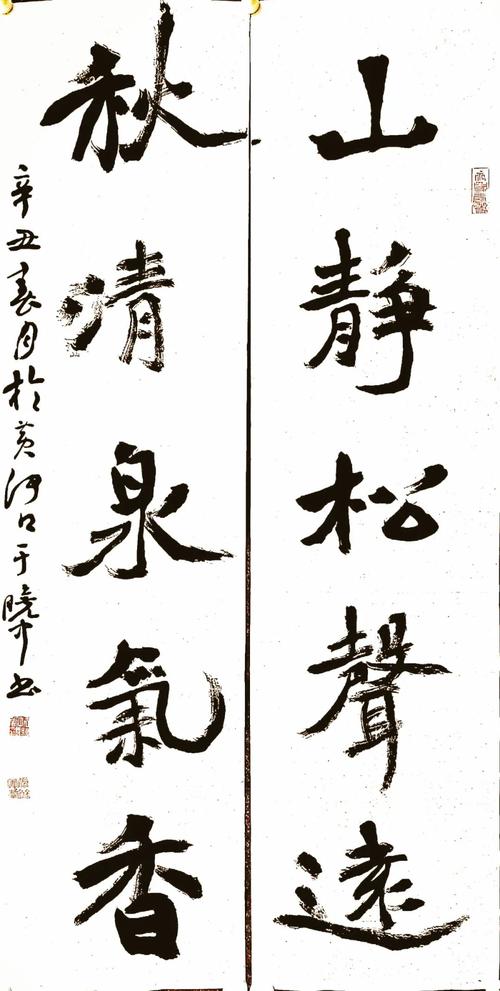 山靜松聲遠
秋清泉氣香
辛丑春月於黃河口于曉